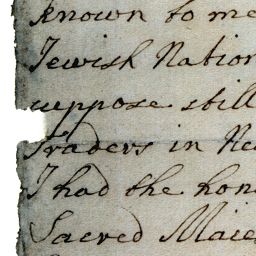 known to me
Jewish Nation
uppose still
Traders in Ne
I had the hon
Sacred Maie